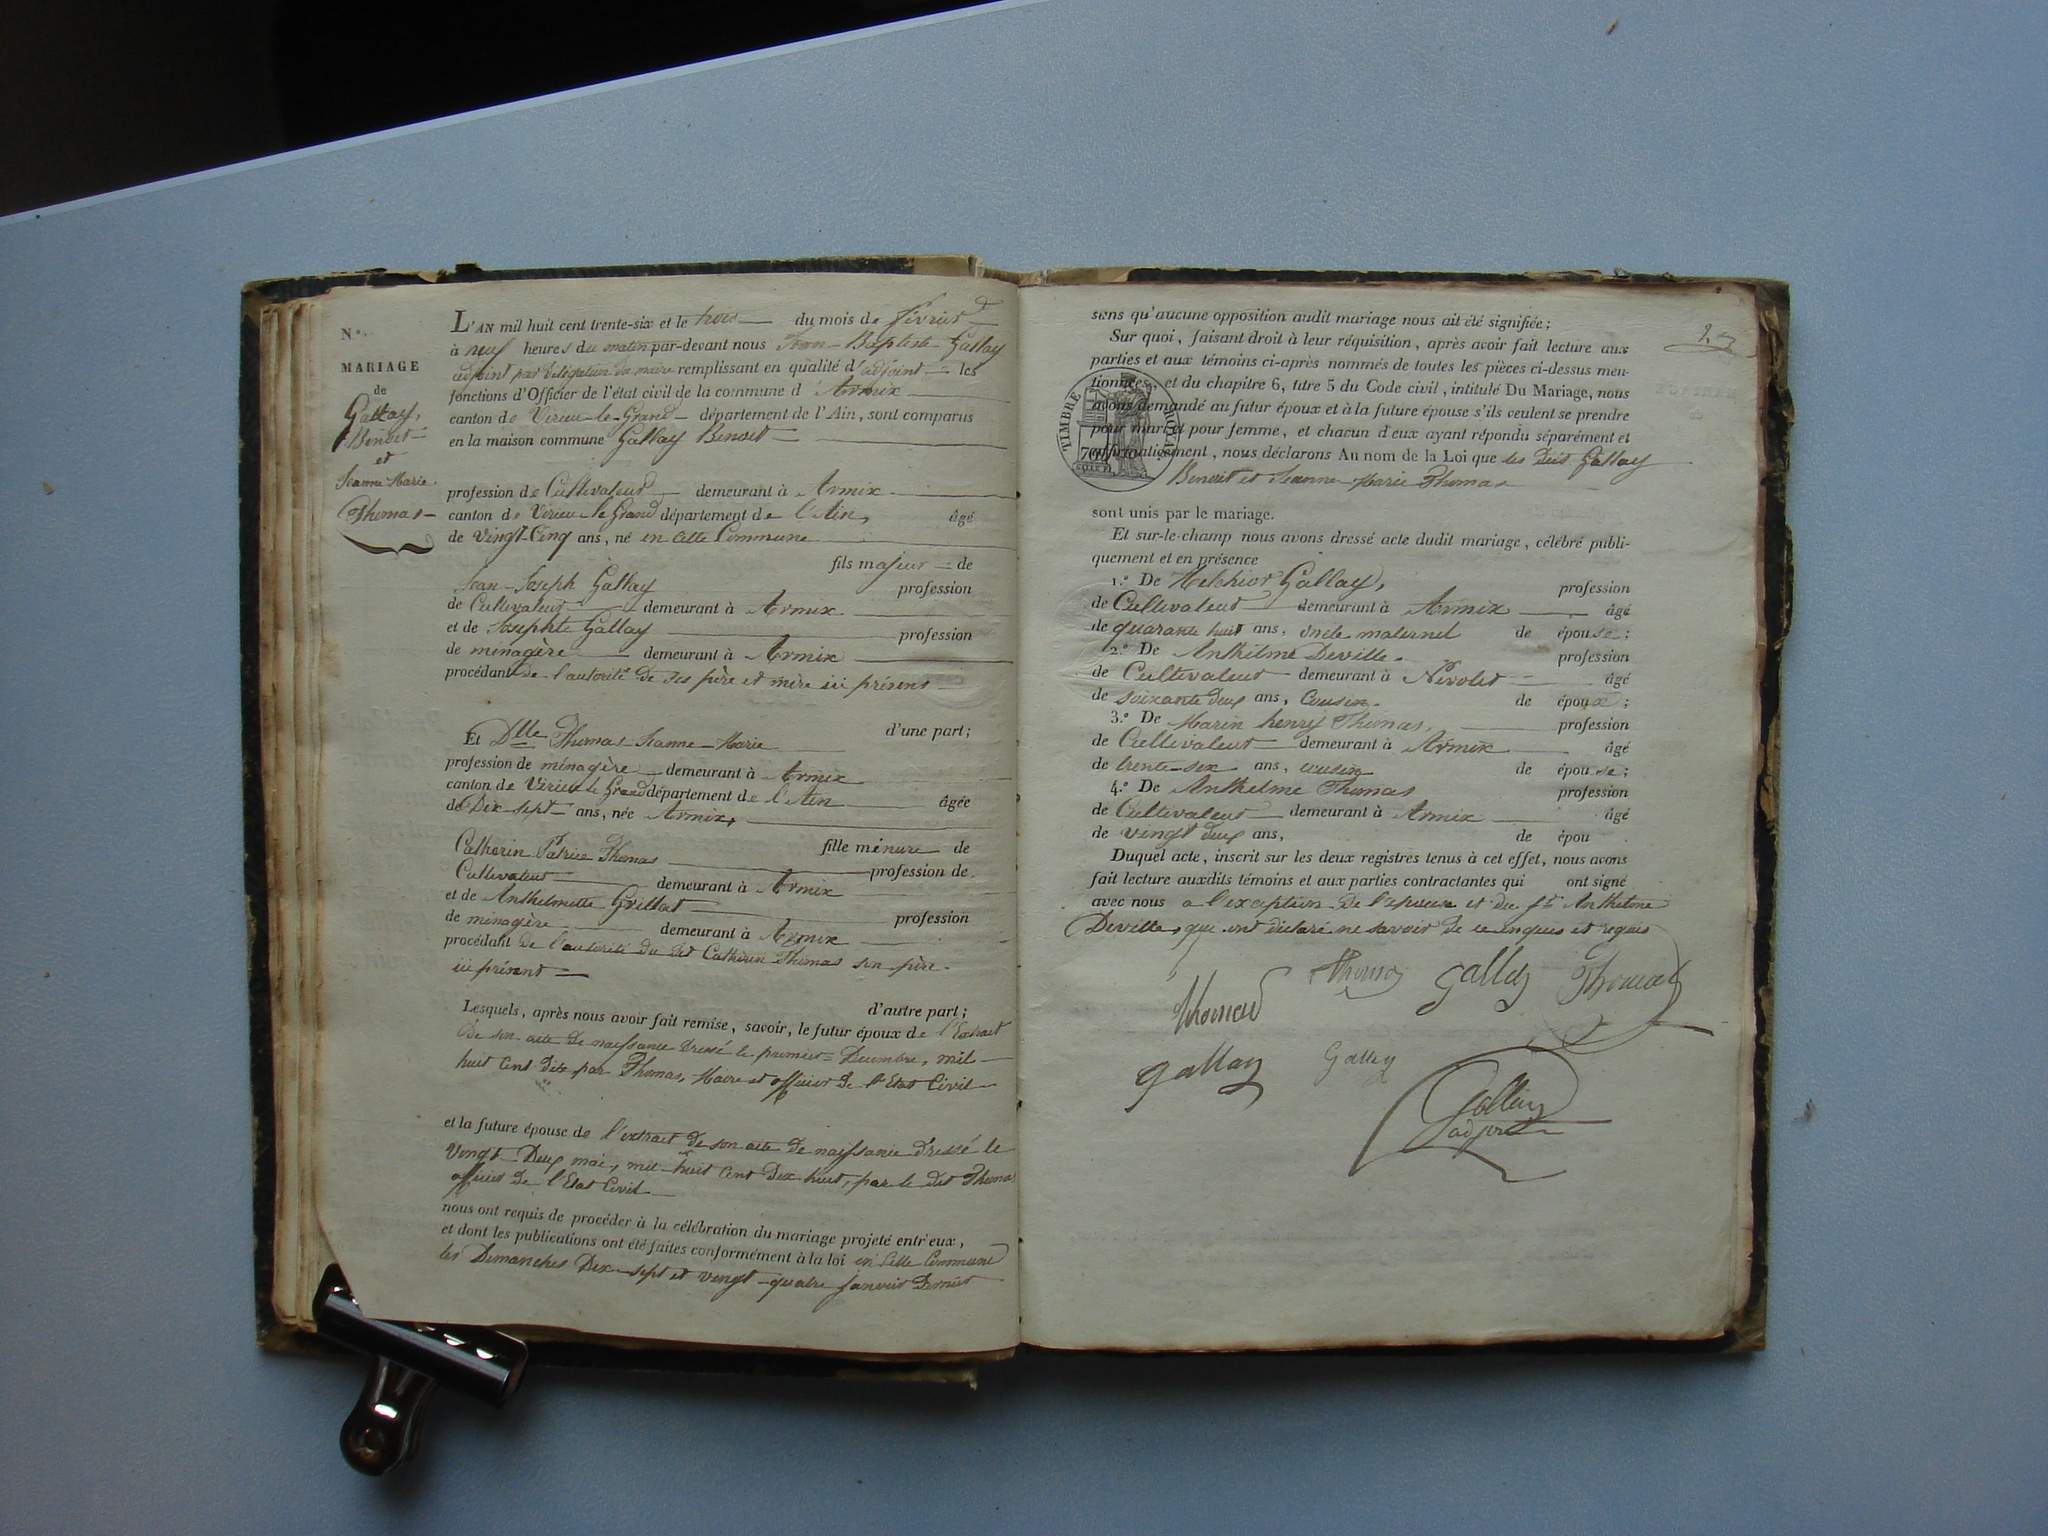 N°.
MARIAGE
de
Gallay,
Benoit
et
Jeanne Marie
Thomas
L'AN mil huit cent trente-six et le trois du mois de février
à neuf heures du matin par-devant nous Jean-Baptiste Gallay
adjoint par délégation du maire remplissant en qualité d'adjoint les
fonctions d'Officier de l'état civil de la commune d'Armix
canton de Virieu-le-Grand département de l'Ain, sont comparus
en la maison commune Gallay Benoit
profession de Cultivateur demeurant à Armix
canton de Virieu-le-Grand département de l'Ain, âgé
de vingt-Cinq ans, né en Cette Commune
fils majeur de
Jean-Joseph Gallay profession
de Cultivateur demeurant à Armix
et de Josephte Gallay profession
de ménagère demeurant à Armix
procédant de l'autorité de ses père et mère ici présens
d'une part;
Et Dlle Thomas Jeanne-Marie
profession de ménagère demeurant à Armix
canton de Virieu-le-Grand département de l'Ain âgée
de Dix-sept ans, née Armix,
fille mineure de
Catherin Patrice Thomas profession de
Cultivateur demeurant à Armix
et de Anthelmette Grillat profession
de ménagère demeurant à Armix
procédant de l'autorité du dit Catherin Thomas son père
ici présent
d'autre part;
Lesquels, après nous avoir fait remise, savoir, le futur époux de l'Extrait
de son acte de naissance dressé le premier Decembre, mil
huit cent dix par Thomas, Maire et officier de l'Etat Civil
et la future épouse de l'extrait de son acte de naissance dressé le
vingt-Deux mai, mil huit cent Dix huit, par le dit Thomas
officier de l'Etat Civil
nous ont requis de procéder à la célébration du mariage projeté entr'eux,
et dont les publications ont été faites conformément à la loi en Cette Commune
les Dimanches Dix-sept et vingt-quatre janvier Dernier
sans qu'aucune opposition audit mariage nous ait été signifiée;
Sur quoi, faisant droit à leur réquisition, après avoir fait lecture aux
parties et aux témoins ci-après nommés de toutes les pièces ci-dessus men-
tionnées, et du chapitre 6, titre 5 du Code civil, intitulé Du Mariage, nous
avons demandé au futur époux et à la future épouse s'ils veulent se prendre
pour mari et pour femme, et chacun d'eux ayant répondu séparément et
affirmativement, nous déclarons Au nom de la Loi que les dits Gallay
Benoit et Jeanne-Marie Thomas
TIMBRE ROYAL
70
sont unis par le mariage.
Et sur-le-champ nous avons dressé acte dudit mariage, célébré publi-
quement et en présence
1.° De Melchior Gallay, profession
de Cultivateur demeurant à Armix âgé
de quarante huit ans, oncle maternel de épouse;
2.° De Anthelme Deville profession
de Cultivateur demeurant à âgé
de soixante deux ans, Cousin de époux;
3.° De Marin henry Thomas, profession
de Cultivateur demeurant à Armix âgé
de trente-six ans, cousin de épouse;
4.° De Anthelme Thomas profession
de Cultivateur demeurant à Armix âgé
de vingt deux ans, de épou .
Duquel acte, inscrit sur les deux registres tenus à cet effet, nous avons
fait lecture auxdits témoins et aux parties contractantes qui ont signé
avec nous a l'exception de l'épouse et du sr Anthelme
Deville, qui ont déclaré ne savoir de ce enquis et requis
Thomas Gallay Thomas
Thomas
Gallay Gallay
Gallay
adjoint